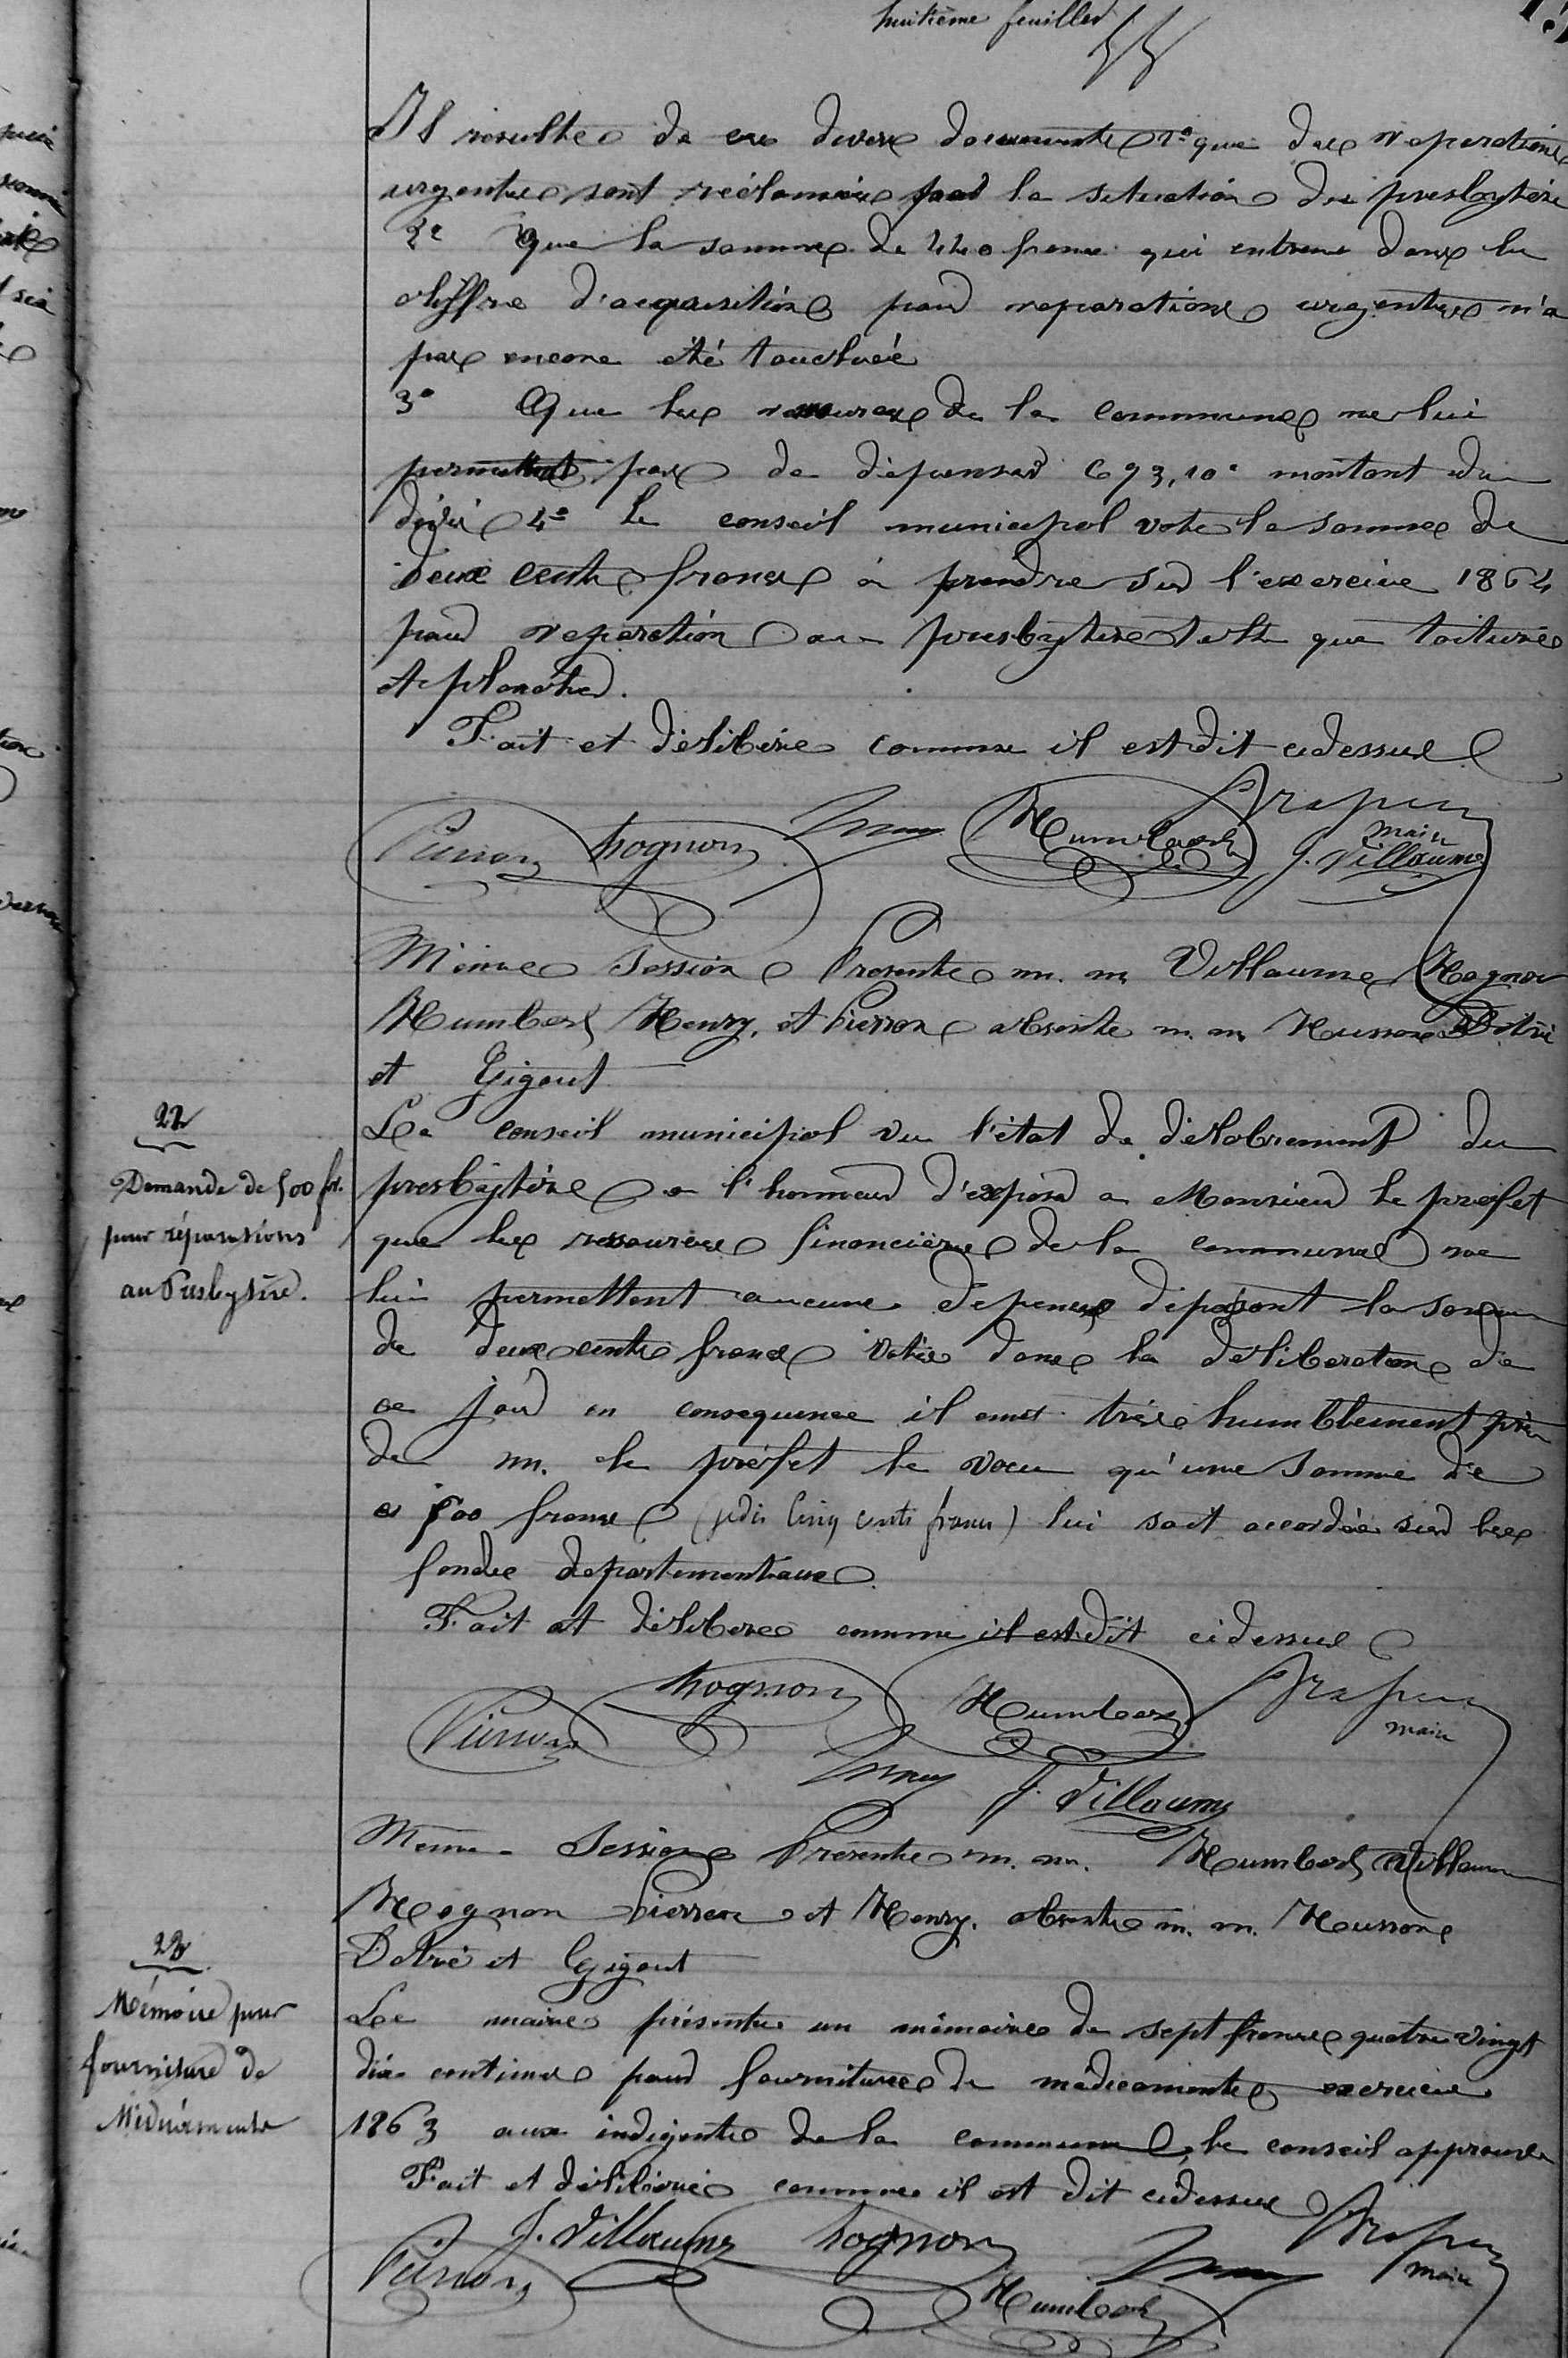 huitième feuillet
Il resulte de ces divers documents 1º que des reparations
urgentes sont réclamées par la situation du presbytère
2º Que la somme de 440 francs qui entrent dans le
chiffre d'acquisition pour reparations urgentes n'a
pas encore été touchée
3º Que les ressources de la commune ne lui
permettent pas de dépenser 693,10c montant du
devis 4º le conseil municipal vote la somme de
deux cents francs à prendre sur l'exercice 1864
pour reparation au presbytère tells que toitures
et plancher.
Fait et délibéré comme il est dit cidessus
Pierron hognon Henry Humbert
maire
J. Villaume
Même Session Presents m. m. Villaume Hognon
Humbert Henry, et Pierron absents m. m. Husson Dotré
et Gigout
22
Demande de 500 fr.
pour réparations
au Presbytère.
Le conseil municipal vu l'état de délabrement du
presbytère a l'honneur d'exposer a Monsieur le préfet
que les ressources financières de la commune ne
lui permettent aucune dépense dépassant la somme
de deux cents francs votée dans la deliberation de
ce jour en consequence il émet très humblement près
de m. le préfet le voeu qu'une somme de
500 francs (je dis cinq cents francs) lui soit accordée sur les
fonds departementaux
Fait et délibéré comme il est dit cidessus
Pierron hognon Humbert
maire
Henry J. Villaume
Meme Session Presents m. m. Humbert Villaume
Hognon Pierron et Henry. absents m. m. Husson
Dotré et Gigout
23
Mémoire pour
fourniture de
Médicaments
Le maire présente un mémoire de sept francs quatre vingt
dix centimes pour fournitures de médicaments exercice
1863 aux indigents de la commune, le conseil approuve
Fait et délibéré comme il est dit cidessus
J. Villaume hognon
Pierron Henry maire
Humbert